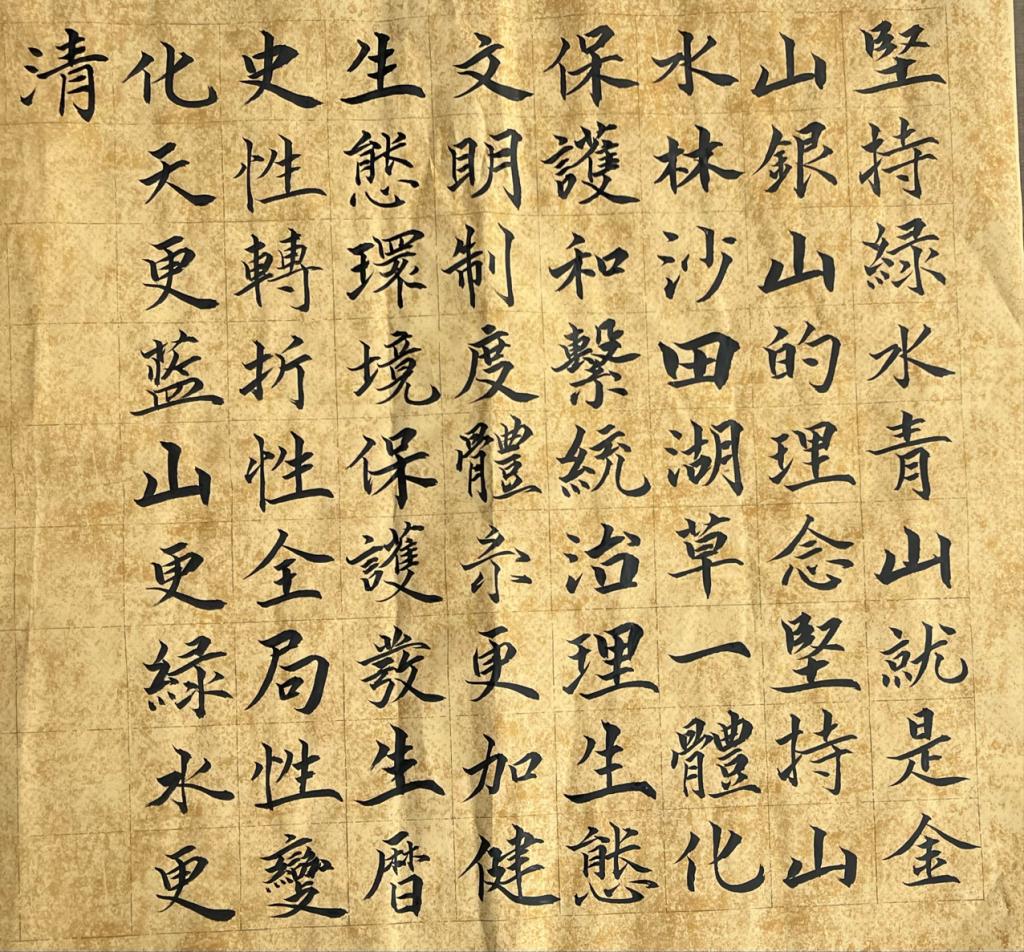 堅持緑水青山就是金
山銀山的理念堅持山
水林沙田湖草一體化
保護和繫統治理生態
文明制度體系更加健
生態環境保護發生暦
史性轉折性全局性變
化天更藍山更緑水更
清